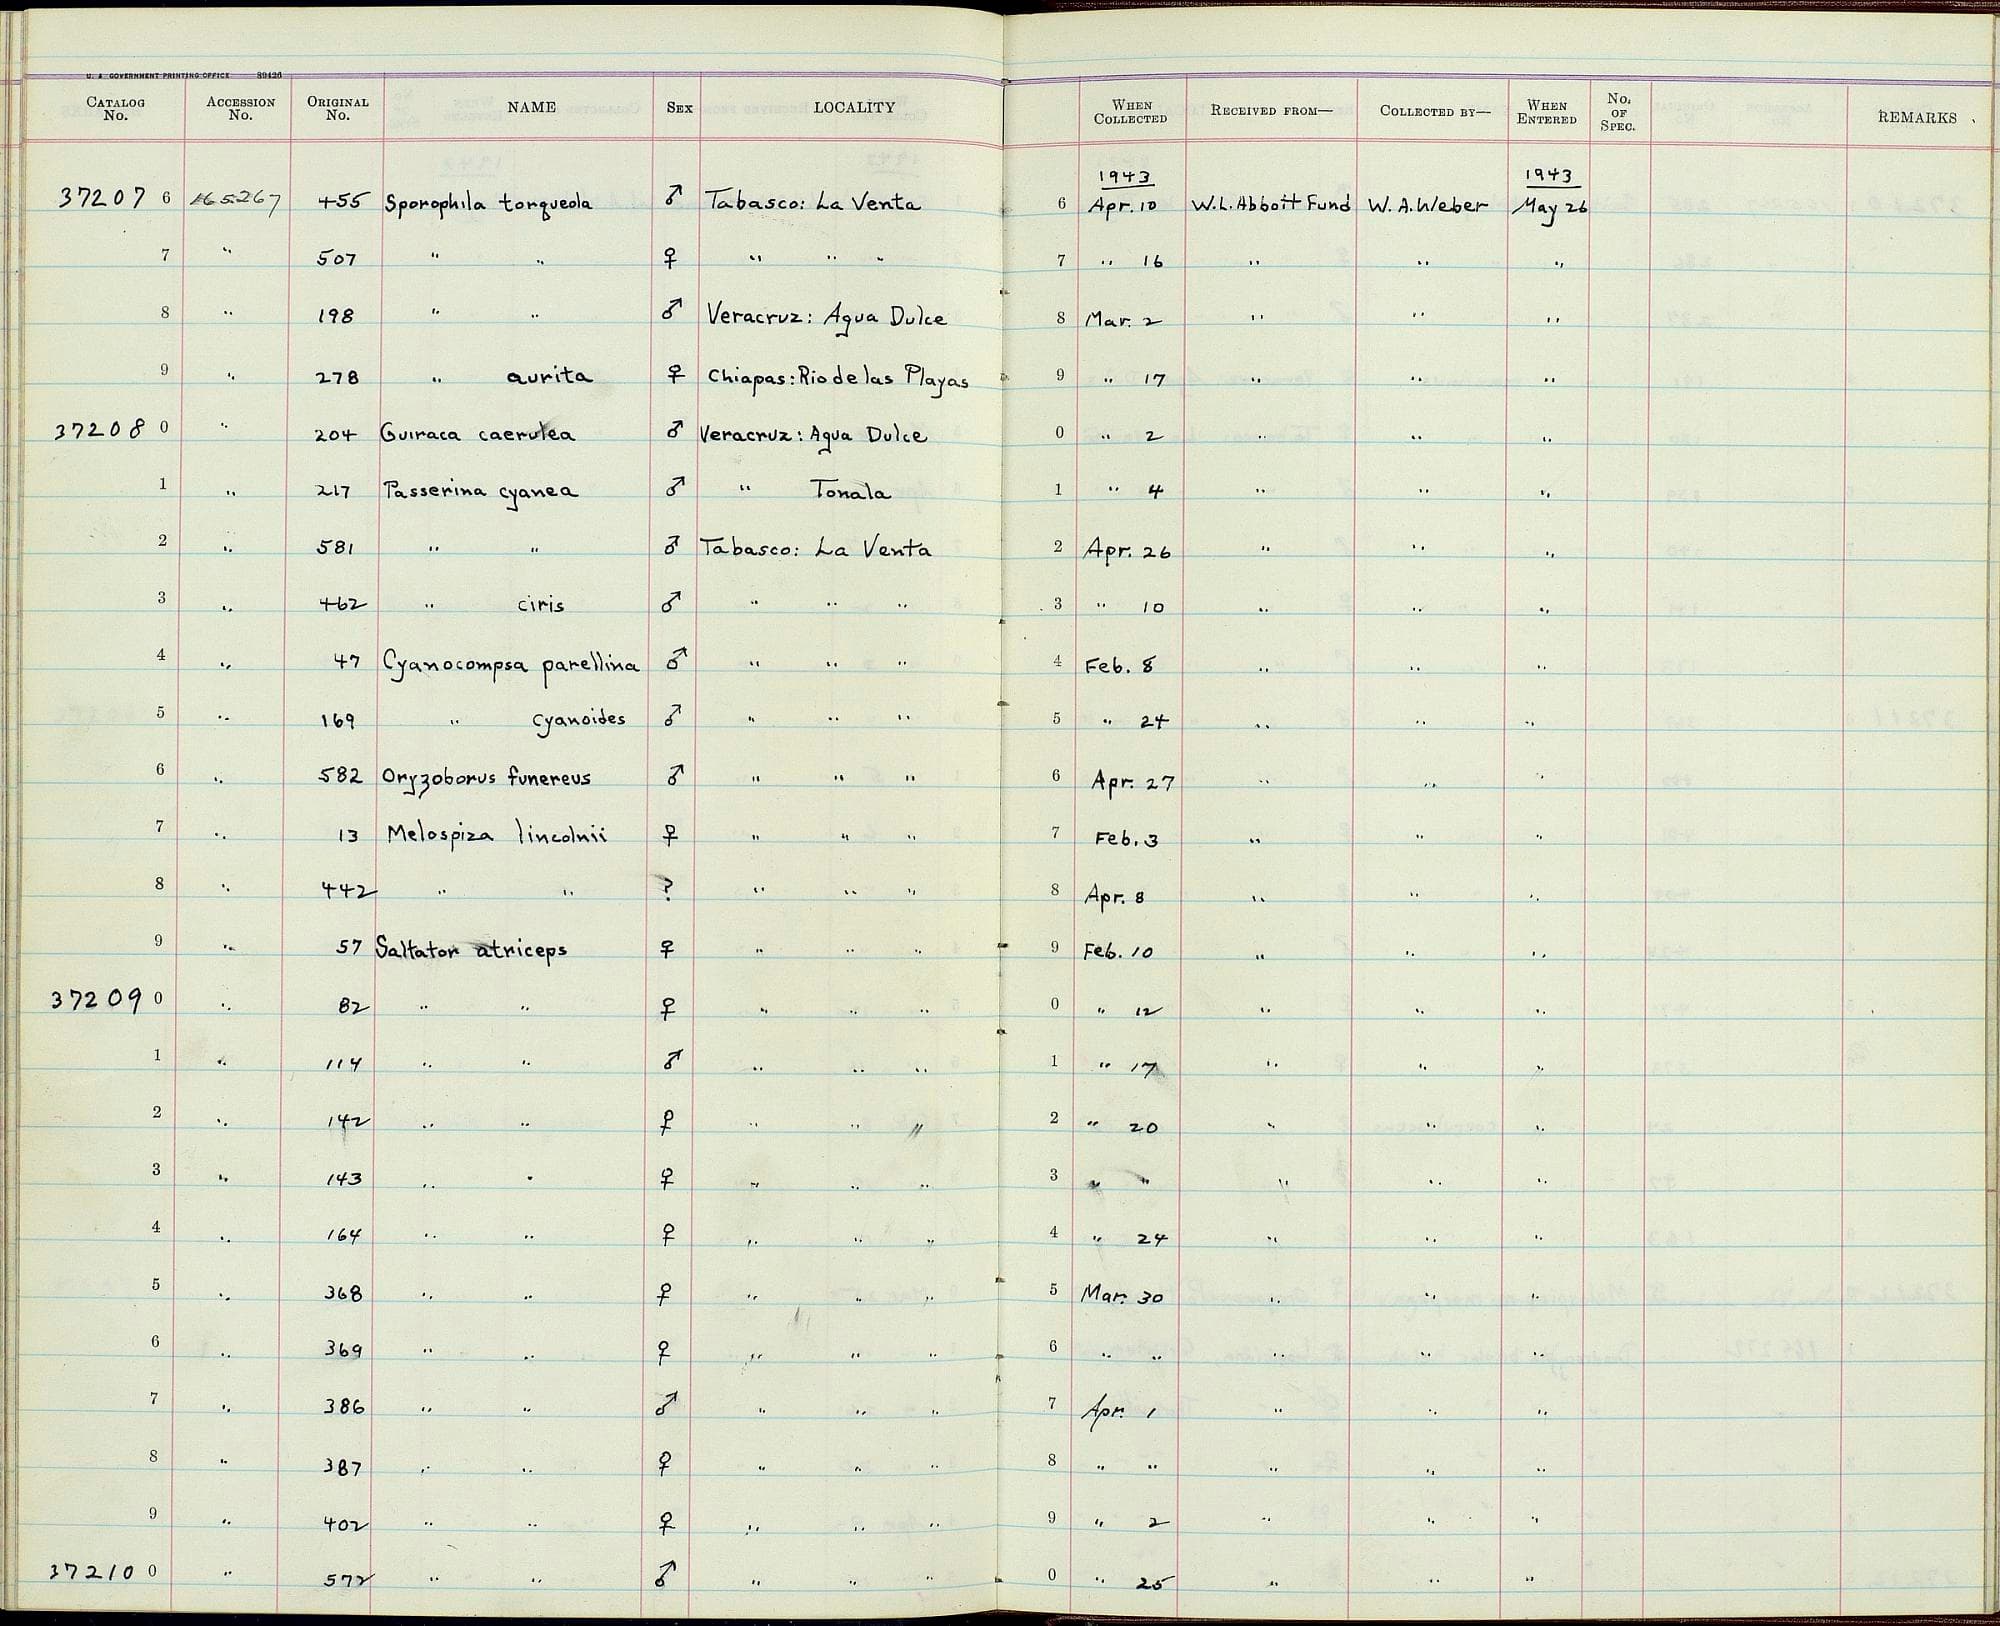 U. S. GOVERNMENT PRINTING OFFICE 89426
CATALOG No. ACCESSION No. ORIGINAL No. NAME SEX LOCALITY WHEN COLLECTED RECEIVED FROM— COLLECTED BY— WHEN ENTERED No. OF SPEC. REMARKS
1943 1943
37207 6 165267 455 Sporophila torqueola ♂ Tabasco: La Venta 6 Apr. 10 W.L. Abbott Fund W. A. Weber May 26
7 " 507 " " ♀ " " " 7 " 16 " " "
8 " 198 " " ♂ Veracruz: Agua Dulce 8 Mar. 2 " " "
9 " 278 " aurita ♀ Chiapas: Rio de las Playas 9 " 17 " " "
37208 0 " 204 Guiraca caerulea ♂ Veracruz: Agua Dulce 0 " 2 " " "
1 " 217 Passerina cyanea ♂ " Tonala 1 " 4 " " "
2 " 581 " " ♂ Tabasco: La Venta 2 Apr. 26 " " "
3 " 462 " ciris ♂ " " " 3 " 10 " " "
4 " 47 Cyanocompsa parellina ♂ " " " 4 Feb. 8 " " "
5 " 169 " cyanoides ♂ " " " 5 " 24 " " "
6 " 582 Oryzoborus funereus ♂ " " " 6 Apr. 27 " " "
7 " 13 Melospiza lincolnii ♀ " " " 7 Feb. 3 " " "
8 " 442 " " ? " " " 8 Apr. 8 " " "
9 " 57 Saltator atriceps ♀ " " " 9 Feb. 10 " " "
37209 0 " 82 " " ♀ " " " 0 " 12 " " "
1 " 114 " " ♂ " " " 1 " 17 " " "
2 " 142 " " ♀ " " " 2 " 20 " " "
3 " 143 " " ♀ " " " 3 " " " " "
4 " 164 " " ♀ " " " 4 " 24 " " "
5 " 368 " " ♀ " " " 5 Mar. 30 " " "
6 " 369 " " ♀ " " " 6 " " " " "
7 " 386 " " ♂ " " " 7 Apr. 1 " " "
8 " 387 " " ♀ " " " 8 " " " " "
9 " 402 " " ♀ " " " 9 " 2 " " "
37210 0 " 572 " " ♂ " " " 0 " 25 " " "